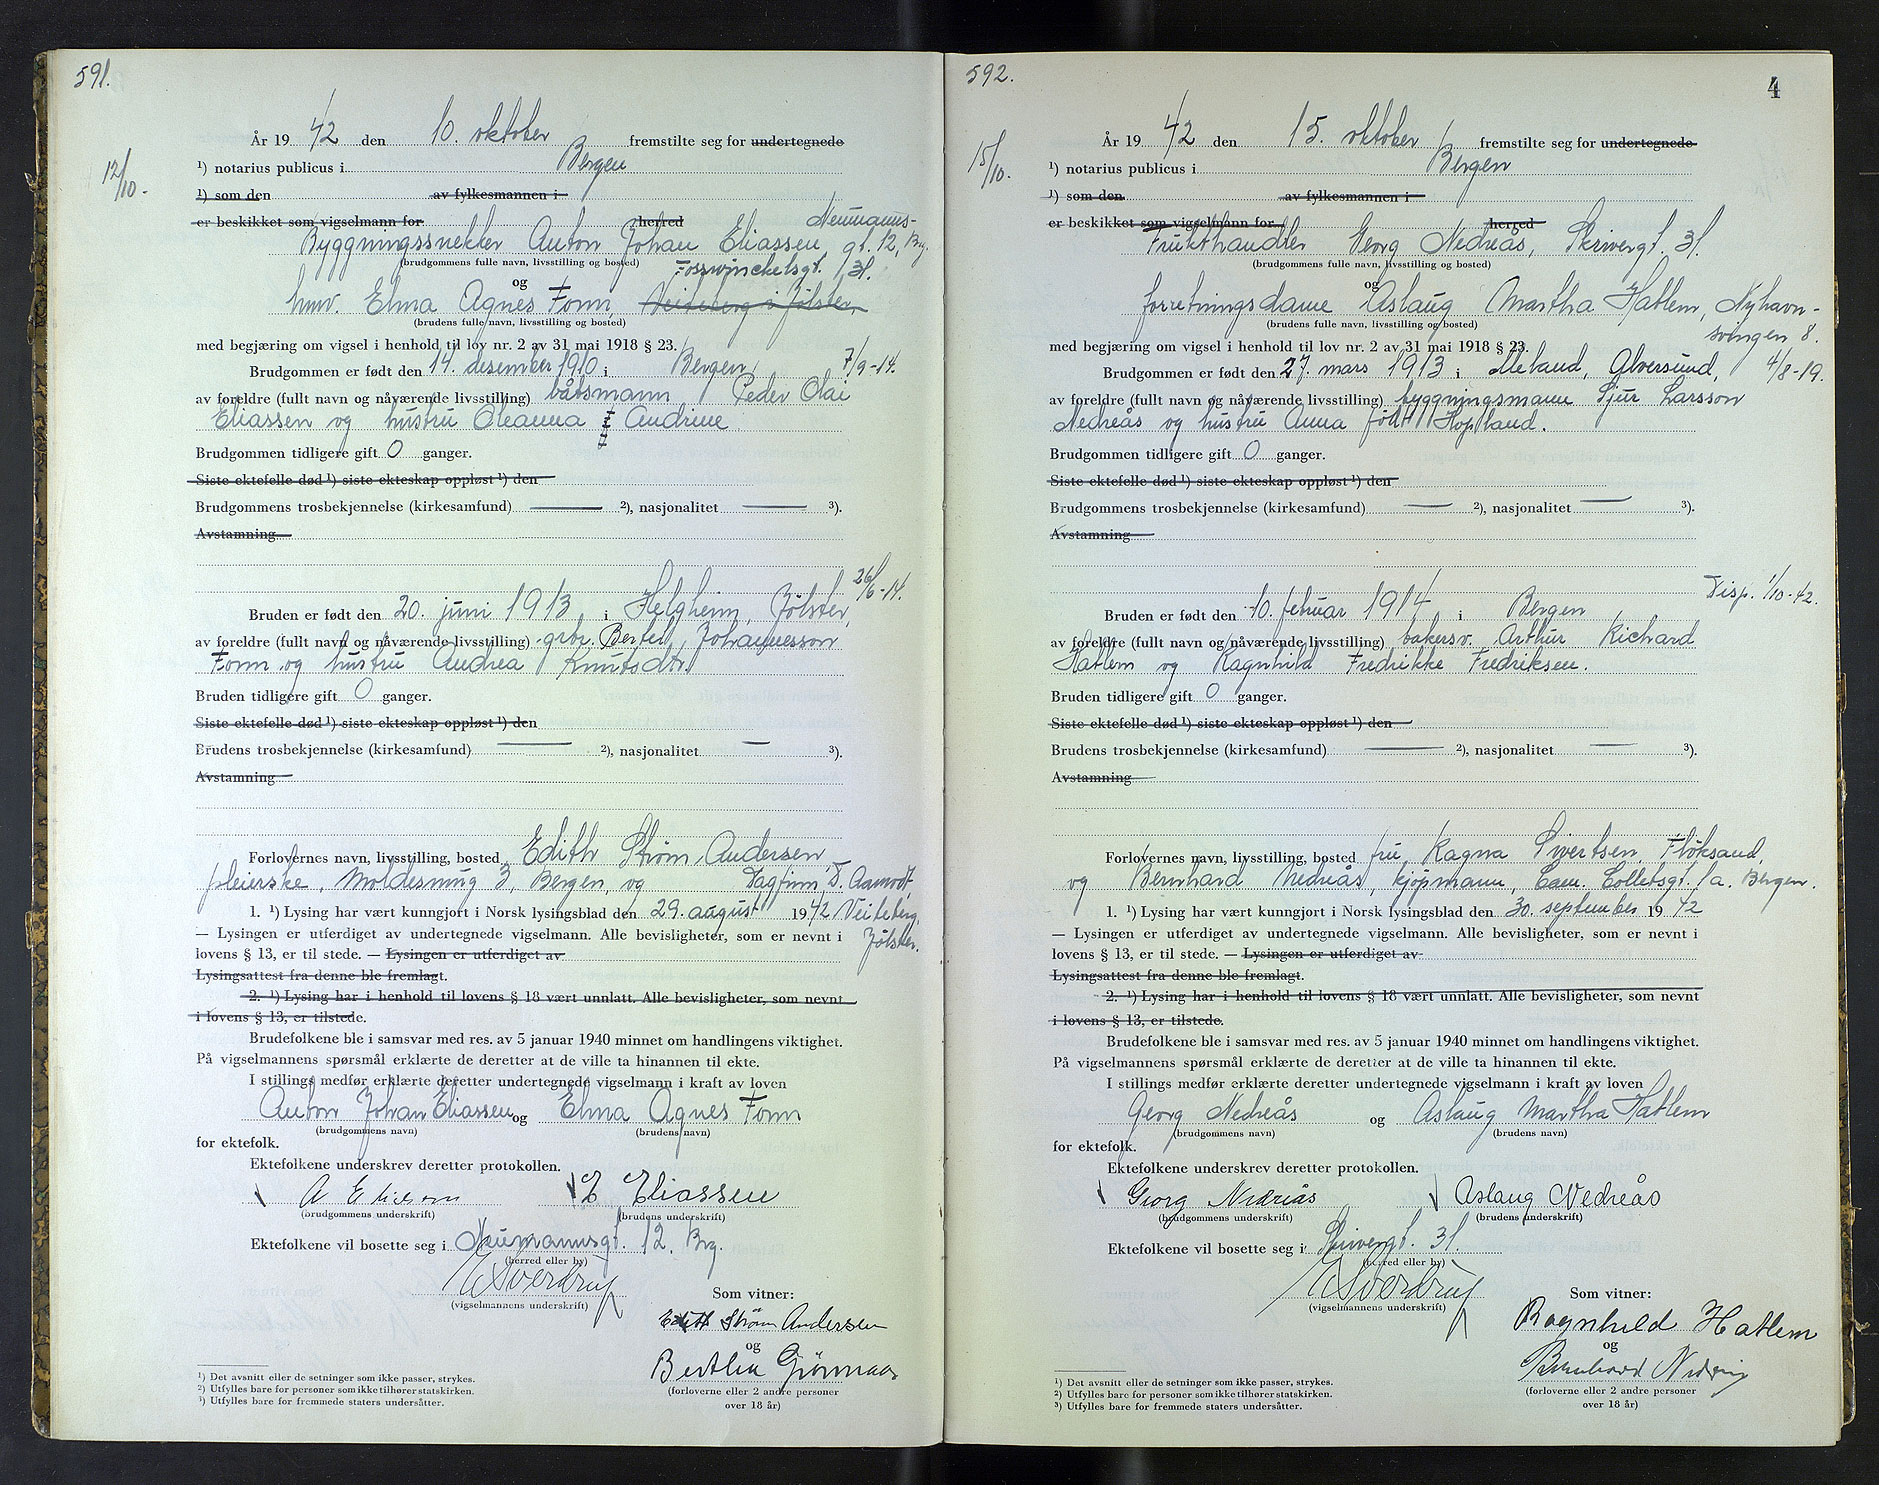 591.
År 19 42 den 10. oktober fremstilte seg for undertegnede
12/10.
¹) notarius publicus i Bergen
¹) som den av fylkesmannen i
er beskikket som vigselmann for herred Neumanns-
Byggningssnekker Anton Johan Eliassen, gt. 12, Brg.
(brudgommens fulle navn, livsstilling og bosted) Fosswinckelsgt. 31.
og
hmv. Elma Agnes Fonn, Veiteberg i Jølster,
(brudens fulle navn, livsstilling og bosted)
med begjæring om vigsel i henhold til lov nr. 2 av 31 mai 1918 § 23.
Brudgommen er født den 14. desember 1910 i Bergen, 7/9-14.
av foreldre (fullt navn og nåværende livsstilling) båtsmann Peder Olai
Eliassen og hustru Oleanna Andrine
Brudgommen tidligere gift 0 ganger.
Siste ektefelle død ¹) siste ekteskap oppløst ¹) den
Brudgommens trosbekjennelse (kirkesamfund) — ²), nasjonalitet — ³).
Avstamning
26/6-14.
Bruden er født den 20. juni 1913 i Helgheim, Jølster,
av foreldre (fullt navn og nåværende livsstilling) grbr. Bertel Johannesson
Fonn og hustru Andrea Knutsdtr.
Bruden tidligere gift 0 ganger.
Siste ektefelle død ¹) siste ekteskap oppløst ¹) den
Brudens trosbekjennelse (kirkesamfund) — ²), nasjonalitet — ³).
Avstamning
Forlovernes navn, livsstilling, bosted Edith Strøm Andersen,
pleierske, Moldesmug 3, Bergen, og Dagfinn D. Aamodt,
1. ¹) Lysing har vært kunngjort i Norsk lysingsblad den 29. august 1942 Veiteberg,
— Lysingen er utferdiget av undertegnede vigselmann. Alle bevisligheter, som er nevnt i Jølster.
lovens § 13, er til stede. — Lysingen er utferdiget av
Lysingsattest fra denne ble fremlagt.
2. ¹) Lysing har i henhold til lovens § 18 vært unnlatt. Alle bevisligheter, som nevnt
i lovens § 13, er tilstede.
Brudefolkene ble i samsvar med res. av 5 januar 1940 minnet om handlingens viktighet.
På vigselmannens spørsmål erklærte de deretter at de ville ta hinannen til ekte.
I stillings medfør erklærte deretter undertegnede vigselmann i kraft av loven
Anton Johan Eliassen og Elma Agnes Fonn
(brudgommens navn) (brudens navn)
for ektefolk.
Ektefolkene underskrev deretter protokollen.
A Eliassen E Eliassen
(brudgommens underskrift) (brudens underskrift)
Ektefolkene vil bosette seg i Neumannsgt. 12. Brg.
(herred eller by)
E Sverdrup
(vigselmannens underskrift) Som vitner:
Edith Strøm Andersen
og
Bertha
(forloverne eller 2 andre personer
over 18 år)
¹) Det avsnitt eller de setninger som ikke passer, strykes.
²) Utfylles bare for personer som ikke tilhører statskirken.
³) Utfylles bare for fremmede staters undersåtter.
592.
4
År 19 42 den 15. oktober fremstilte seg for undertegnede
15/10.
¹) notarius publicus i Bergen
¹) som den av fylkesmannen i
er beskikket som vigselmann for herred
Frukthandler Georg Nedreås, Skivergt. 31.
(brudgommens fulle navn, livsstilling og bosted)
og
forretningsdame Aslaug Martha Hatlem, Nyhavn-
(brudens fulle navn, livsstilling og bosted) svingen 8.
med begjæring om vigsel i henhold til lov nr. 2 av 31 mai 1918 § 23.
Brudgommen er født den 27. mars 1913 i Meland, Alversund, 4/8-19.
av foreldre (fullt navn og nåværende livsstilling) byggningsmann Sjur Larsson
Nedreås og hustru Anna født Hopland.
Brudgommen tidligere gift 0 ganger.
Siste ektefelle død ¹) siste ekteskap oppløst ¹) den
Brudgommens trosbekjennelse (kirkesamfund) — ²), nasjonalitet — ³).
Avstamning
Disp. 1/10-42.
Bruden er født den 10. februar 1914 i Bergen
av foreldre (fullt navn og nåværende livsstilling) bakersv. Arthur Richard
Hatlem og Ragnhild Fredrikke Fredriksen.
Bruden tidligere gift 0 ganger.
Siste ektefelle død ¹) siste ekteskap oppløst ¹) den
Brudens trosbekjennelse (kirkesamfund) — ²), nasjonalitet — ³).
Avstamning
Forlovernes navn, livsstilling, bosted fru Ragna Sivertsen, Fløksand,
og Bernhard Nedreås, kjøpmann, Cam. Colletsgt. 1a. Bergen.
1. ¹) Lysing har vært kunngjort i Norsk lysingsblad den 30. september 1942
— Lysingen er utferdiget av undertegnede vigselmann. Alle bevisligheter, som er nevnt i
lovens § 13, er til stede. — Lysingen er utferdiget av
Lysingsattest fra denne ble fremlagt.
2. ¹) Lysing har i henhold til lovens § 18 vært unnlatt. Alle bevisligheter, som nevnt
i lovens § 13, er tilstede.
Brudefolkene ble i samsvar med res. av 5 januar 1940 minnet om handlingens viktighet.
På vigselmannens spørsmål erklærte de deretter at de ville ta hinannen til ekte.
I stillings medfør erklærte deretter undertegnede vigselmann i kraft av loven
Georg Nedreås og Aslaug Martha Hatlem
(brudgommens navn) (brudens navn)
for ektefolk.
Ektefolkene underskrev deretter protokollen.
Georg Nedreås Aslaug Nedreås
(brudgommens underskrift) (brudens underskrift)
Ektefolkene vil bosette seg i Skivergt. 31.
(herred eller by)
E Sverdrup
(vigselmannens underskrift) Som vitner:
Ragnhild Hatlem
og
Bernhard Nedreås
(forloverne eller 2 andre personer
over 18 år)
¹) Det avsnitt eller de setninger som ikke passer, strykes.
²) Utfylles bare for personer som ikke tilhører statskirken.
³) Utfylles bare for fremmede staters undersåtter.